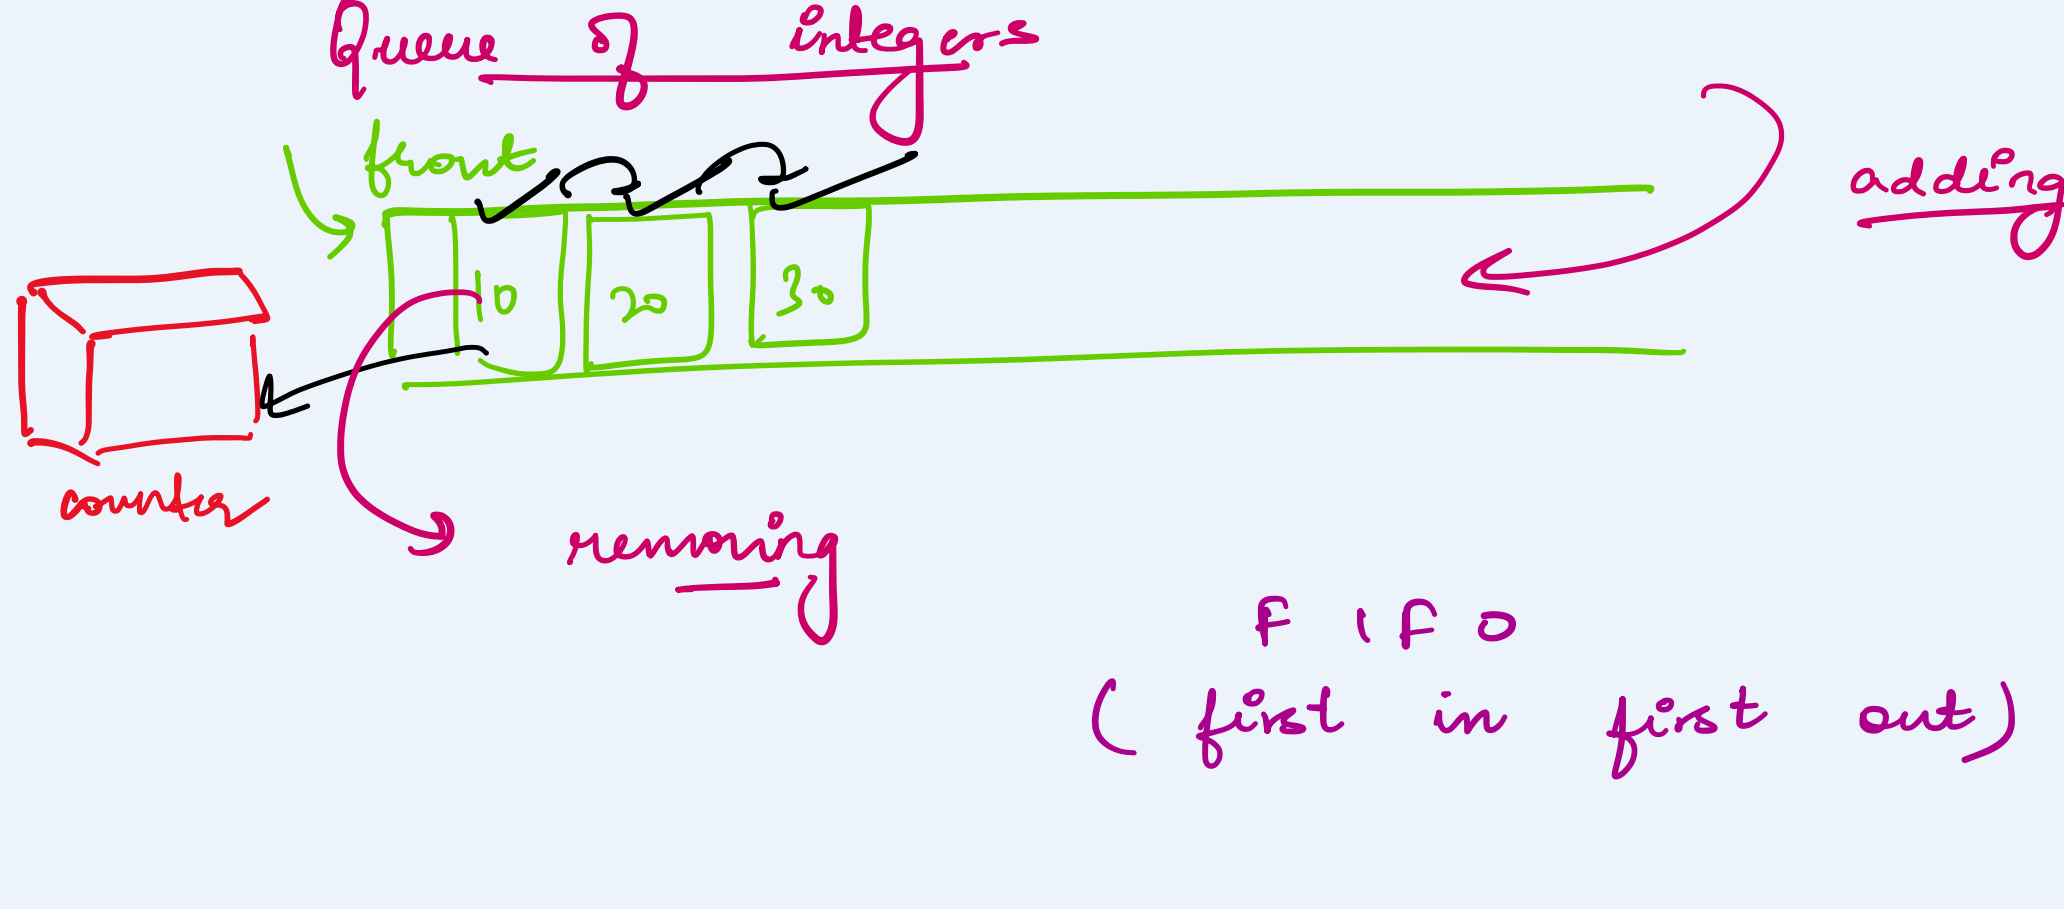 Queue of integers
front
adding
10 20 30
counter
removing
FIFO
(first in first out)